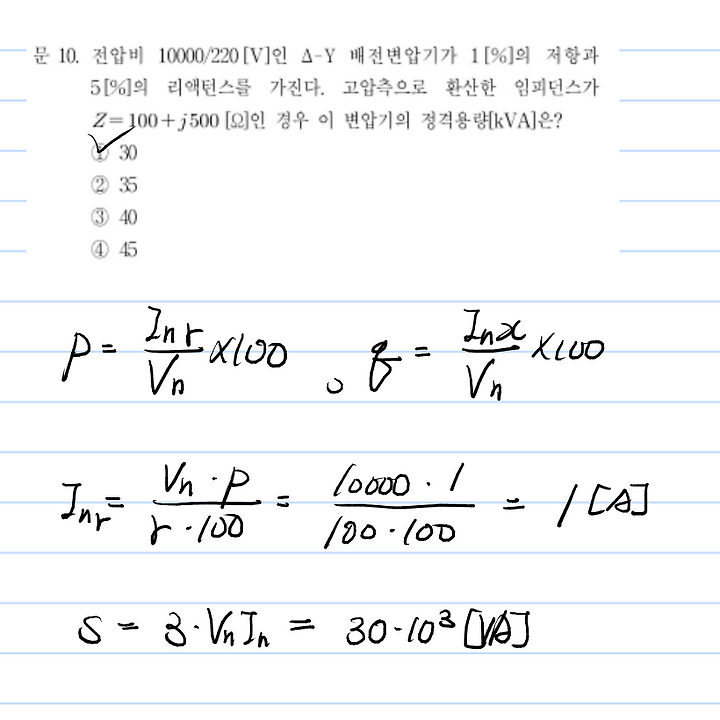 문 10. 전압비 10000/220[V]인 Δ-Y 배전변압기가 1[%]의 저항과
5[%]의 리액턴스를 가진다. 고압측으로 환산한 임피던스가
Z=100+j500[Ω]인 경우 이 변압기의 정격용량[kVA]은?
① 30
② 35
③ 40
④ 45
p = Inr/Vn ×100 。 q = Inx/Vn ×100
Inr = Vn·p / r·100 = 10000·1 / 100·100 = 1 [A]
S = 3·VnIn = 30·10³ [VA]